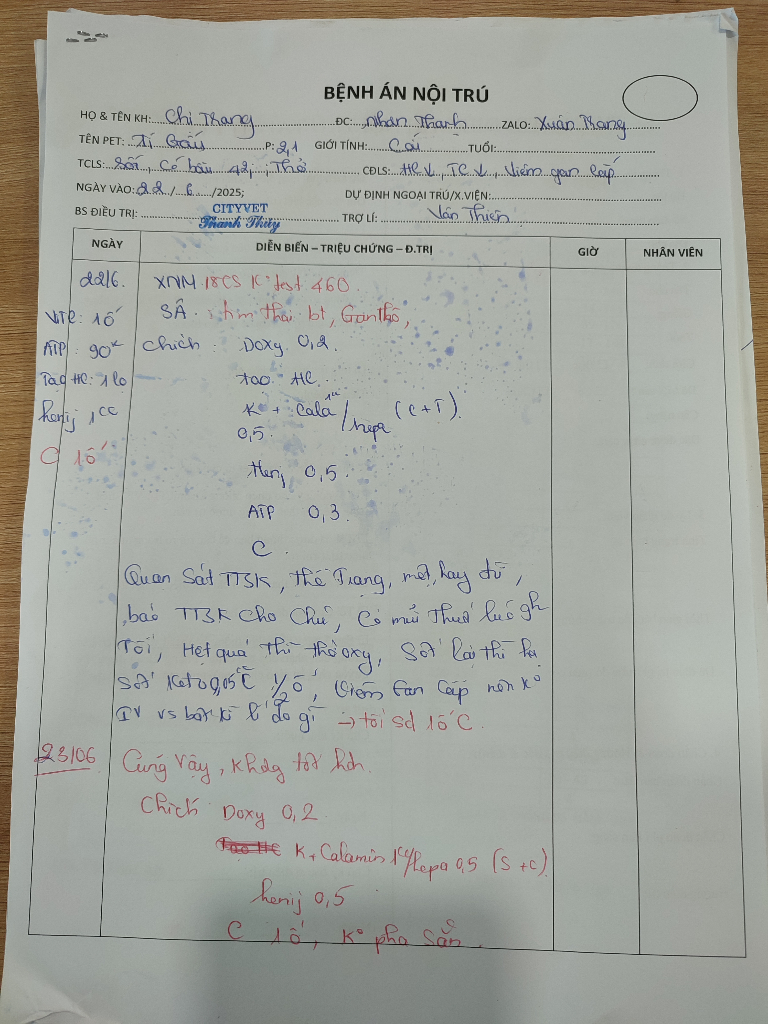 BỆNH ÁN NỘI TRÚ
HỌ & TÊN KH: Chị Trang ĐC: Nhơn Thạnh ZALO: Xuân Trang
TÊN PET: Tí Gấu P: 2,1 GIỚI TÍNH: Cái TUỔI:
TCLS: Sốt, Có bầu 42j, Thở CĐLS: HC↓, TC↓, Viêm gan cấp
NGÀY VÀO: 22/6/2025; DỰ ĐỊNH NGOẠI TRÚ/X.VIỆN:
BS ĐIỀU TRỊ: CITYVET Thanh Thúy TRỢ LÍ: Văn Thiên
NGÀY DIỄN BIẾN – TRIỆU CHỨNG – Đ.TRỊ GIỜ NHÂN VIÊN
22/6. XNM 18CS K° test 460.
1ố SÂ: thai bt, Gan thô,
ATP: 90 chích: Doxy 0,2.
Tạo HC: 1 lọ tạo HC.
henij 1cc K + Cala 1cc/hepa (C+T).
0,5.
C 1ố Henj 0,5.
ATP 0,3.
C.
Quan Sát TTSK, thể Trạng, mệt, hay đừ,
báo TTSK cho Chủ, Có mũi Thuốc lúc gh
Tối, Hẹt quá thì thở oxy, Sốt lại thì hạ
Sốt Keto 0,05 1/2 ố, Viêm Gan Cấp nên K°
IV vs bất kì lí do gì → tối sd 1ố C.
23/06 Cũng vậy, không tốt hơn.
Chích Doxy 0,2
K + Calamin 1cc/hepa 0,5 (S+C)
henij 0,5
C 1ố, K° pha sẵn.